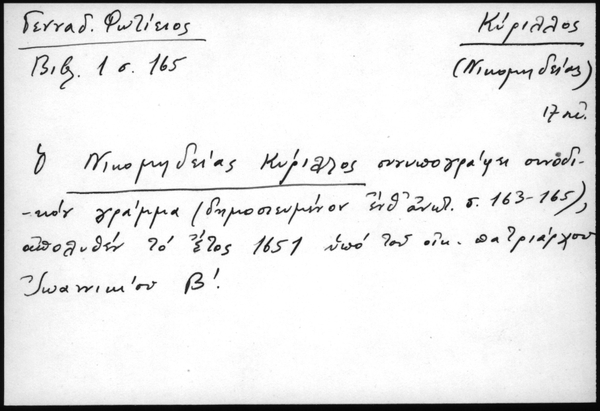 Γενναδ. Φωτίειος
Κύριλλος
Βιβ. 1 σ. 165
(Νικομηδείας)
17 αἰ.
Ὁ Νικομηδείας Κύριλλος συνυπογράφει συνοδι-
-κόν γράμμα (δημοσιευμένον ἔνθ' ἀνωτ. σ. 163-165),
ἀπολυθέν τό ἔτος 1651 ὑπό τοῦ οἰκ. πατριάρχου
Ἰωαννικίου Β΄.